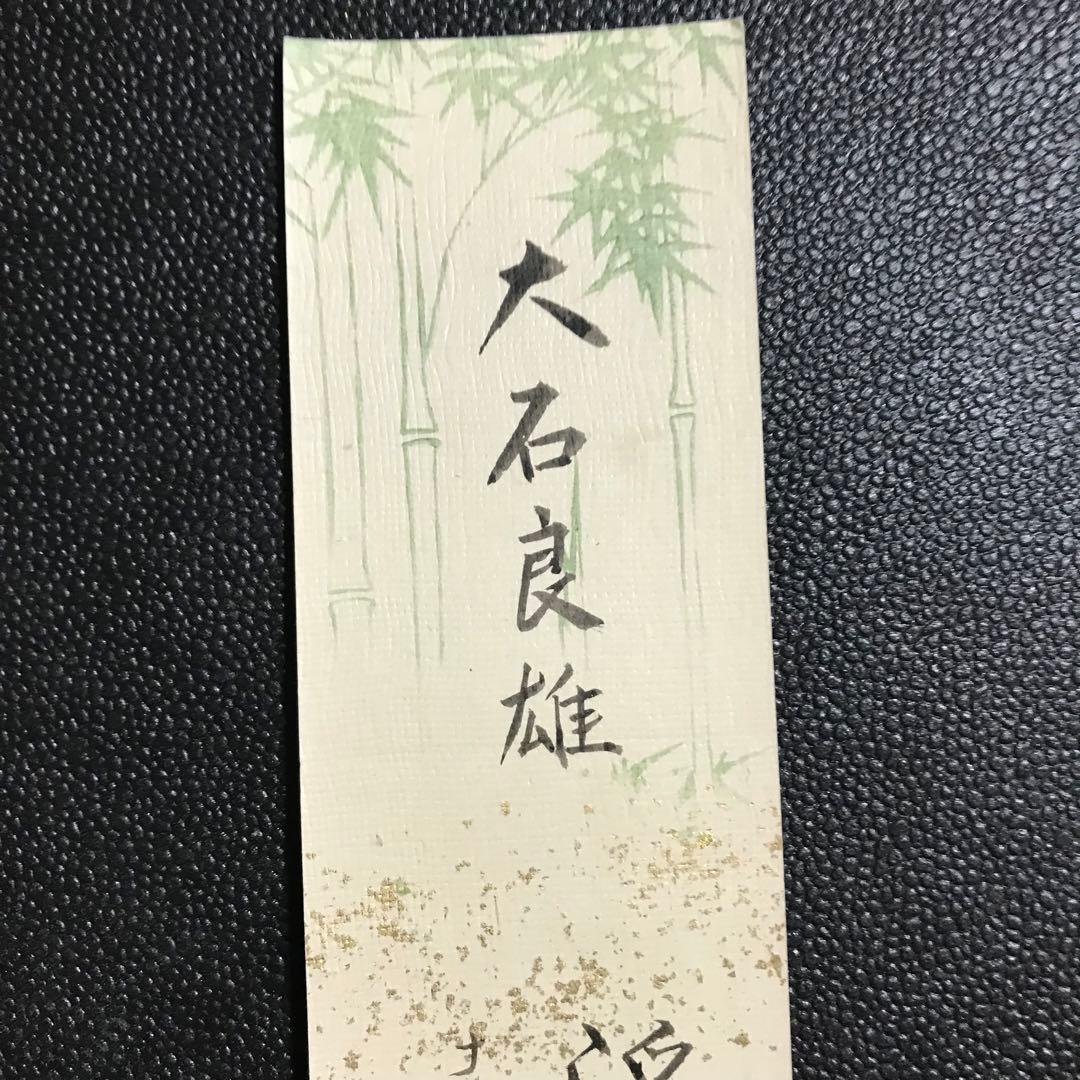 大石良雄